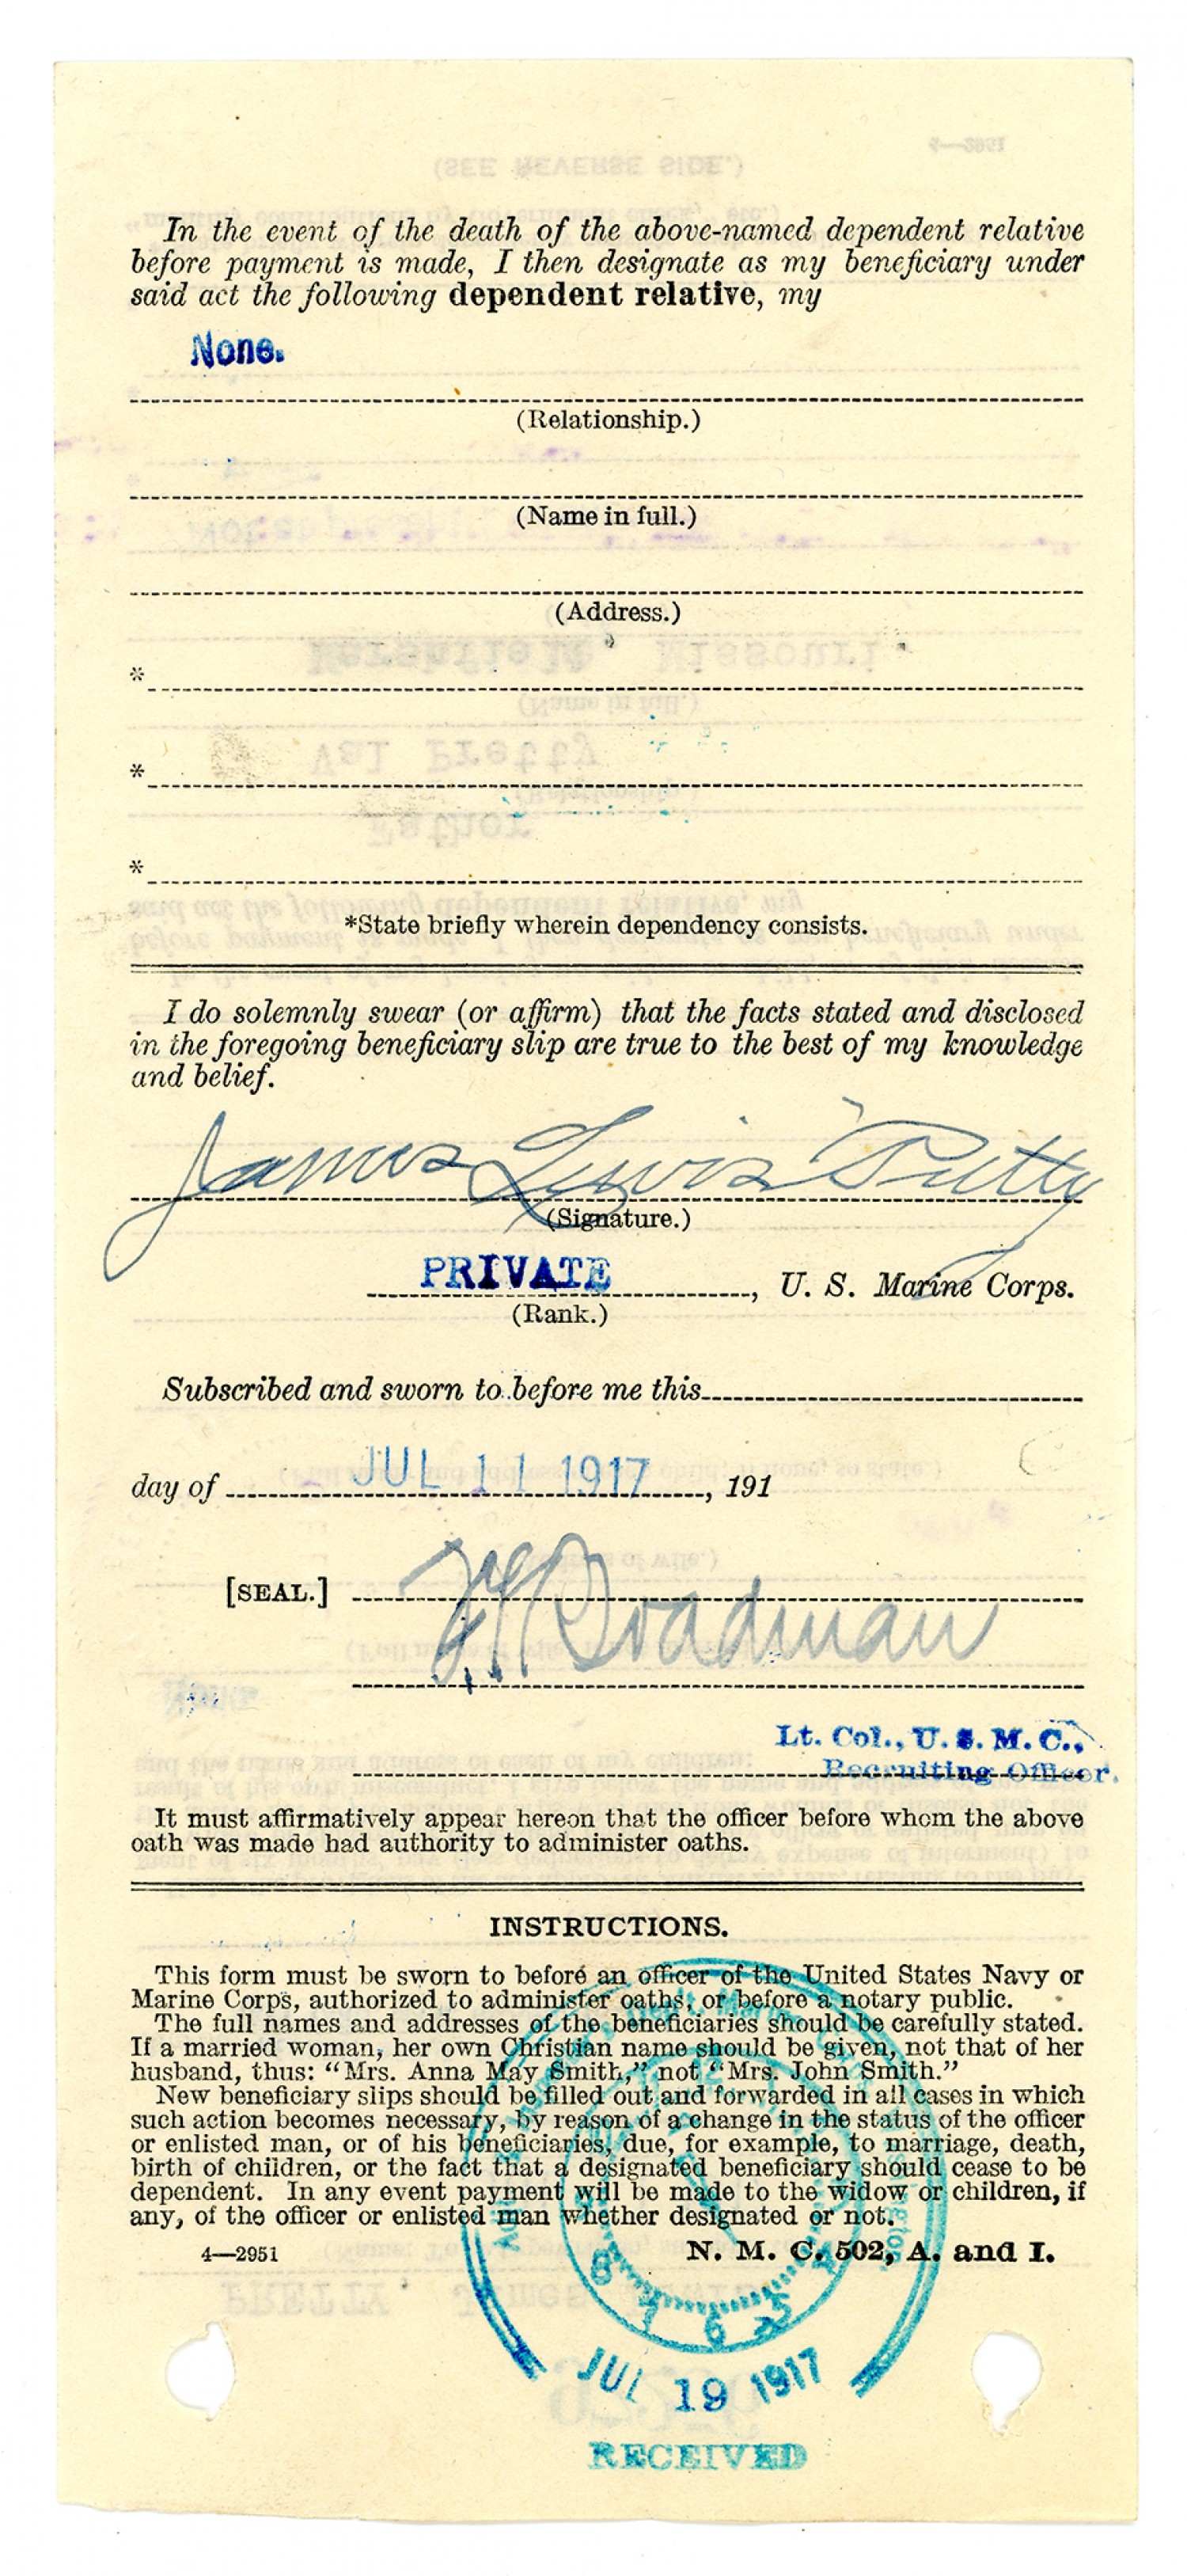 In the event of the death of the above-named dependent relative
before payment is made, I then designate as my beneficiary under
said act the following dependent relative, my
None.
(Relationship.)
(Name in full.)
(Address.)
*
*
*
*State briefly wherein dependency consists.
I do solemnly swear (or affirm) that the facts stated and disclosed
in the foregoing beneficiary slip are true to the best of my knowledge
and belief.
James Lewis Pretty
(Signature.)
PRIVATE, U. S. Marine Corps.
(Rank.)
Subscribed and sworn to before me this
day of JUL 11 1917, 191
[SEAL.]
Boadman
Lt. Col., U. S. M. C.,
Recruiting Officer.
It must affirmatively appear hereon that the officer before whom the above
oath was made had authority to administer oaths.
INSTRUCTIONS.
This form must be sworn to before an officer of the United States Navy or
Marine Corps, authorized to administer oaths, or before a notary public.
The full names and addresses of the beneficiaries should be carefully stated.
If a married woman, her own Christian name should be given, not that of her
husband, thus: “Mrs. Anna May Smith,” not “Mrs. John Smith.”
New beneficiary slips should be filled out and forwarded in all cases in which
such action becomes necessary, by reason of a change in the status of the officer
or enlisted man, or of his beneficiaries, due, for example, to marriage, death,
birth of children, or the fact that a designated beneficiary should cease to be
dependent. In any event payment will be made to the widow or children, if
any, of the officer or enlisted man whether designated or not.
4—2951 N. M. C. 502, A. and I.
JUL 19 1917
RECEIVED